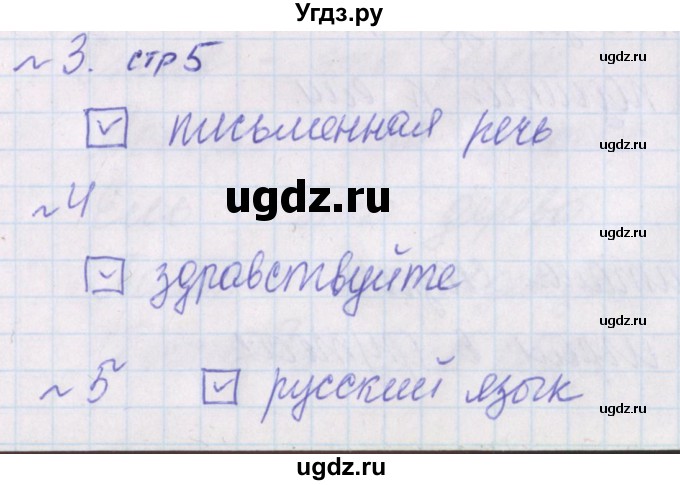 Угдз.ру
~ 3. стр 5
ugdz.ru
☑ письменная речь
ugdz.ru
~ 4
ugdz.ru
ugdz.ru
☑ здравствуйте
ugdz.ru
~ 5 ☑ русский язык
ugdz.ru
ugdz.ru